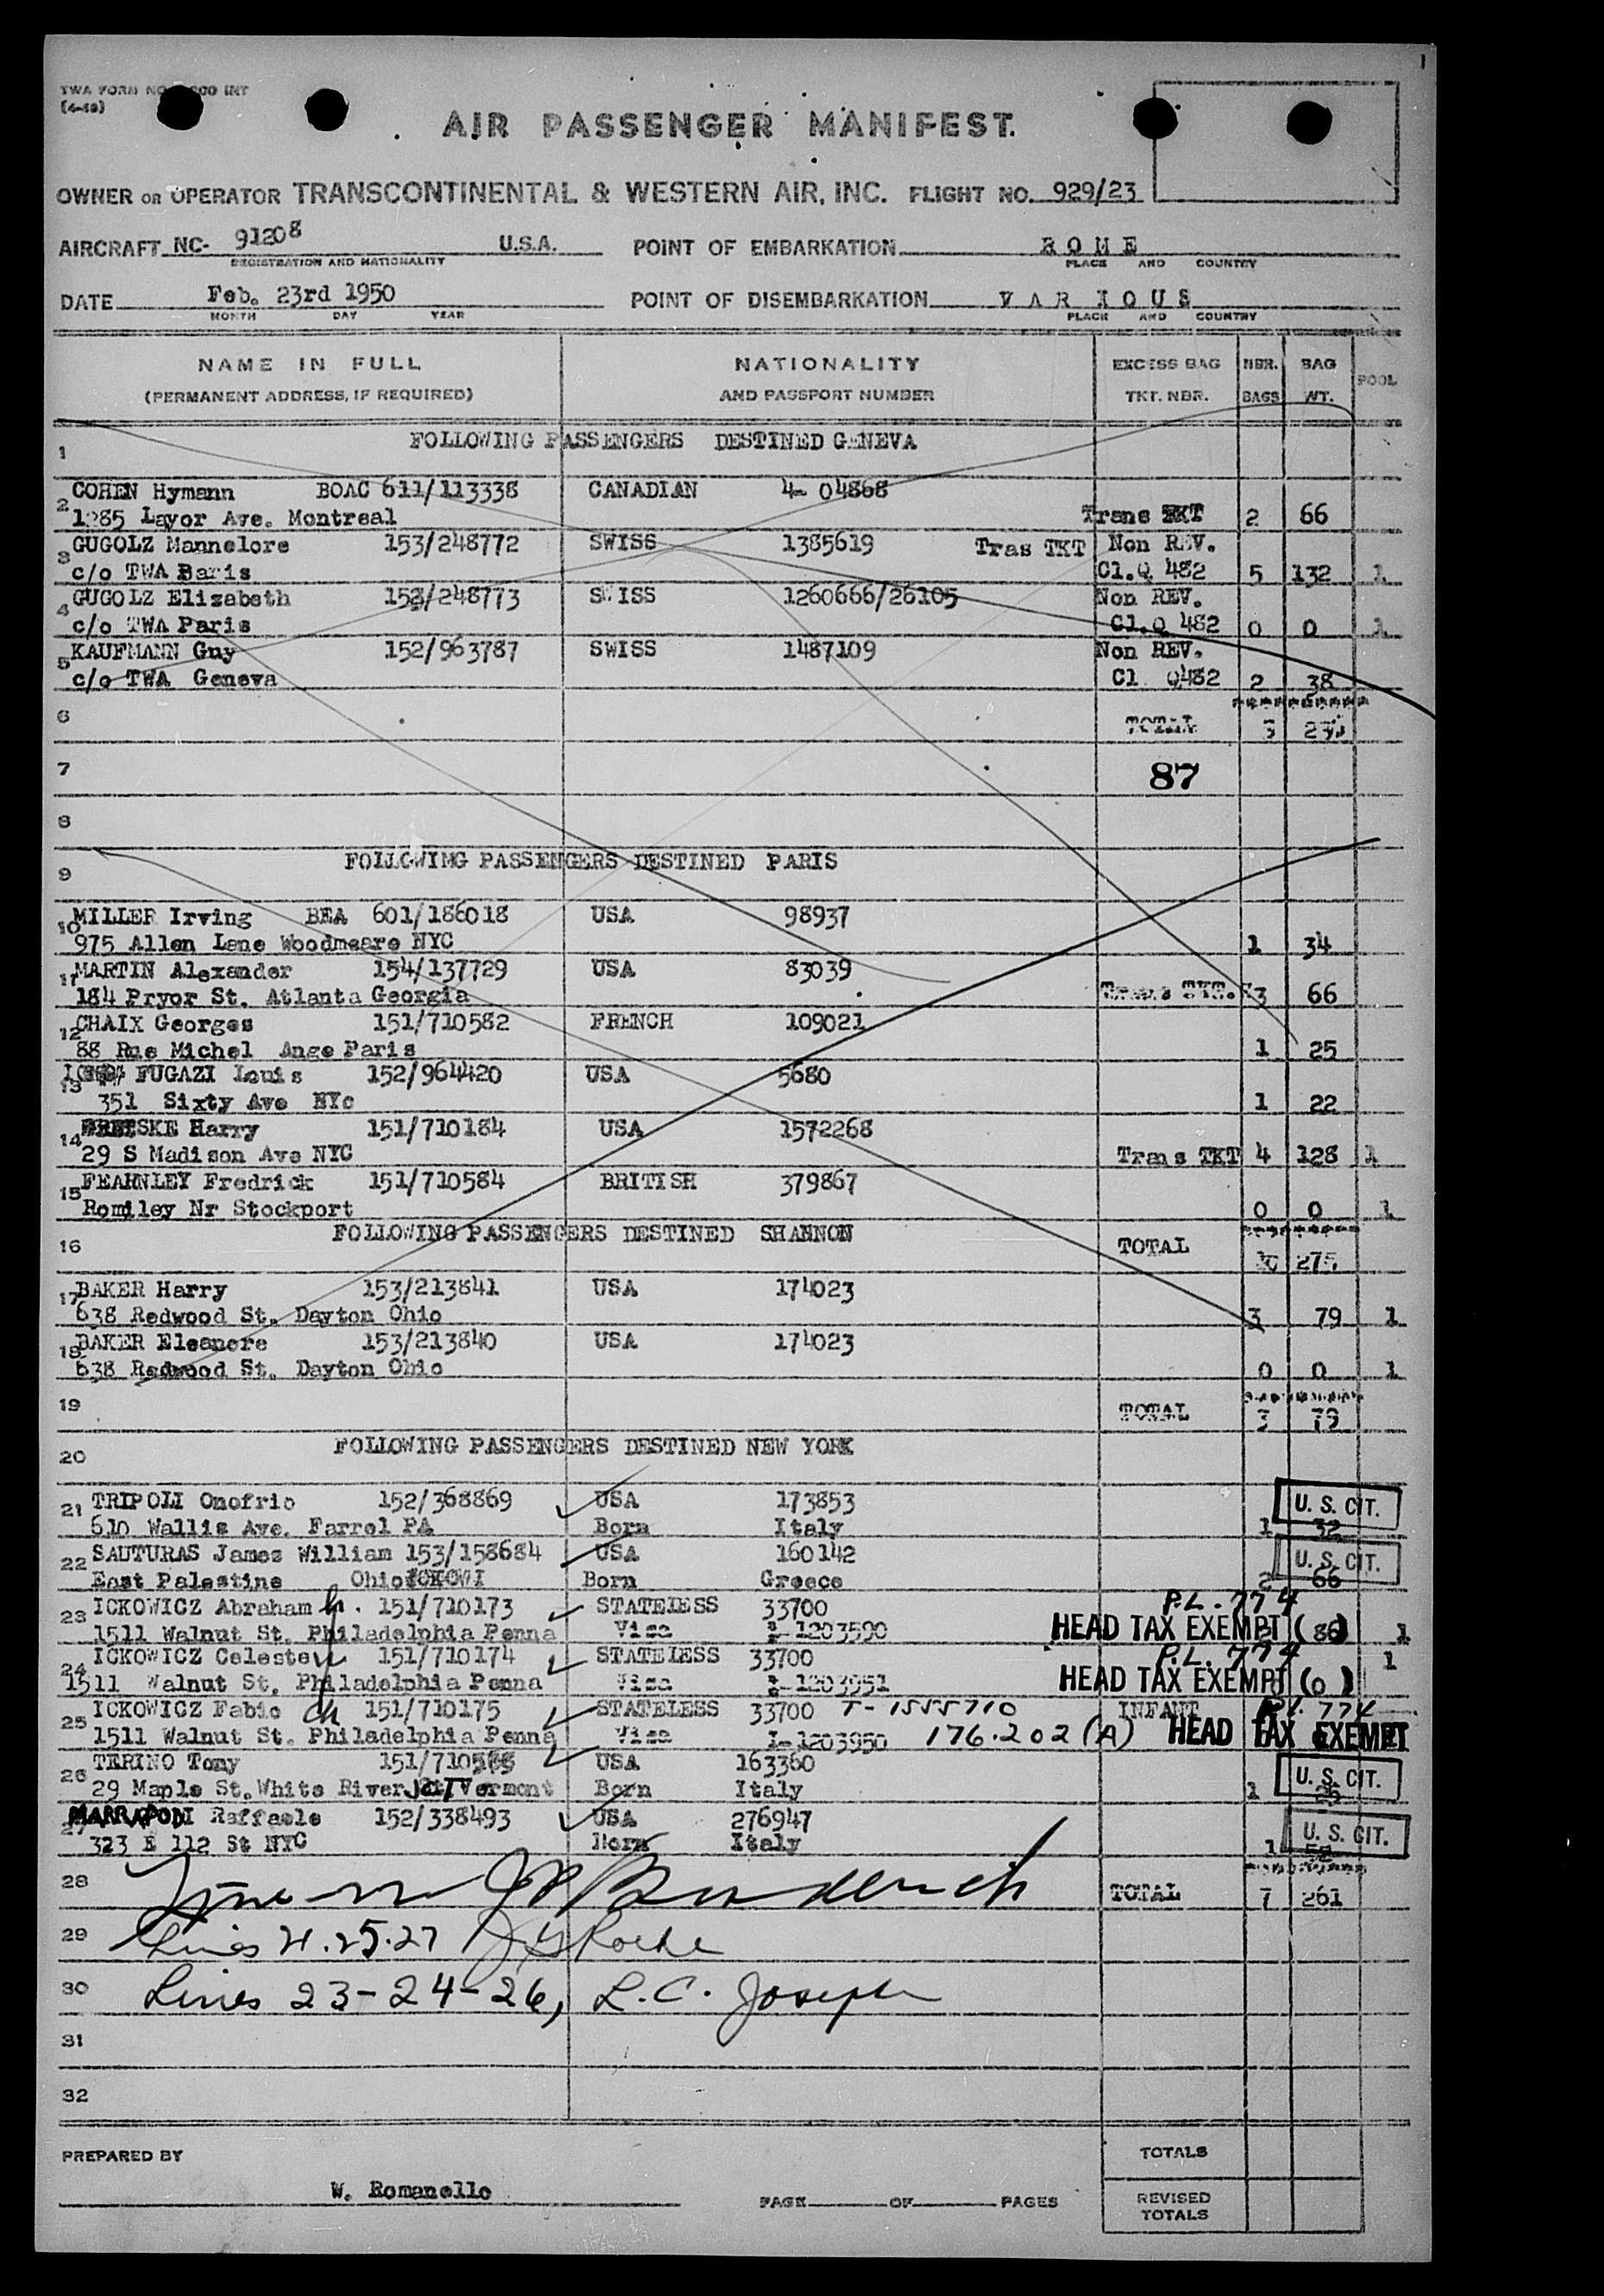 TWA FORM NO. 00 INT
(4-48)
AIR PASSENGER MANIFEST.
OWNER OR OPERATOR TRANSCONTINENTAL & WESTERN AIR, INC. FLIGHT NO. 929/23
AIRCRAFT NC- 91208 U.S.A. POINT OF EMBARKATION ROME
REGISTRATION AND NATIONALITY PLACE AND COUNTRY
DATE Feb. 23rd 1950 POINT OF DISEMBARKATION VARIOUS
MONTH DAY YEAR PLACE AND COUNTRY
NAME IN FULL NATIONALITY EXCESS BAG NBR. BAG POOL
(PERMANENT ADDRESS, IF REQUIRED) AND PASSPORT NUMBER TKT. NBR. BAGS WT.
1 FOLLOWING PASSENGERS DESTINED GENEVA
2 COHEN Hymann BOAC 611/113338 CANADIAN 4- 04868
Layor Ave. Montreal Trans TKT 2 66
3 GUGOLZ Mannelore 153/248772 SWISS 1385619 Tras TKT Non REV.
c/o TWA Baris Cl.Q 482 5 132 1
4 GUGOLZ Elizabeth 153/248773 SWISS 1260666/26105 Non REV.
c/o TWA Paris Cl.Q 482 0 0 1
5 KAUFMANN Guy 152/963787 SWISS 1487109 Non REV.
c/o TWA Geneva Cl Q482 2 38
6 TOTAL
7 87
8
9 FOLLOWING PASSENGERS DESTINED PARIS
10 MILLER Irving BEA 601/186018 USA 98937
975 Allen Lane Woodmeare NYC 1 34
11 MARTIN Alexander 154/137729 USA 83039
184 Pryor St. Atlanta Georgia Trans TKT. 3 66
12 CHAIX Georges 151/710582 FRENCH 109021
88 Rue Michel Ange Paris 1 25
13 FUGAZI Louis 152/964420 USA 5680
351 Sixty Ave NYc 1 22
14 Harry 151/710184 USA 1572268
29 S Madison Ave NYC Trans TKT 4 128 1
15 FEARNLEY Fredrick 151/710584 BRITISH 379867
Romiley Nr Stockport 0 0 1
16 FOLLOWING PASSENGERS DESTINED SHANNON TOTAL 275
17 BAKER Harry 153/213841 USA 174023
638 Redwood St. Dayton Ohio 3 79 1
18 BAKER Eleanore 153/213840 USA 174023
638 Redwood St. Dayton Ohio 0 0 1
19 TOTAL 3 79
20 FOLLOWING PASSENGERS DESTINED NEW YORK
21 TRIPOLI Onofrio 152/368869 USA 173853 U. S. CIT.
610 Wallis Ave. Farrel PA Born Italy 1 32
22 SAUTURAS James William 153/158684 USA 160142 U. S. CIT.
East Palestine Ohio Born Greece 2 66
23 ICKOWICZ Abraham h. 151/710173 STATELESS 33700 P.L. 774
1511 Walnut St. Philadelphia Penna Visa I-1203590 HEAD TAX EXEMPT (86) 1
24 ICKOWICZ Celeste w 151/710174 STATELESS 33700 P.L. 774 1
1511 Walnut St. Philadelphia Penna Visa I-1203951 HEAD TAX EXEMPT (0)
25 ICKOWICZ Fabio ch 151/710175 STATELESS 33700 T-1555710 INFANT P.L. 774
1511 Walnut St. Philadelphia Penna Visa I-1203950 176.202(A) HEAD TAX EXEMPT
26 TERINO Tony 151/710588 USA 163360 U. S. CIT.
29 Maple St. White River Jct Vermont Born Italy 1 25
27 MARRAPODI Raffaele 152/338493 USA 276947 U. S. CIT.
323 E 112 St NYC Born Italy 1
28 TOTAL 7 261
29 Lines 21.25.27
30 Lines 23-24-26, L.C. Joseph
31
32
PREPARED BY TOTALS
W. Romanello PAGE OF PAGES REVISED TOTALS